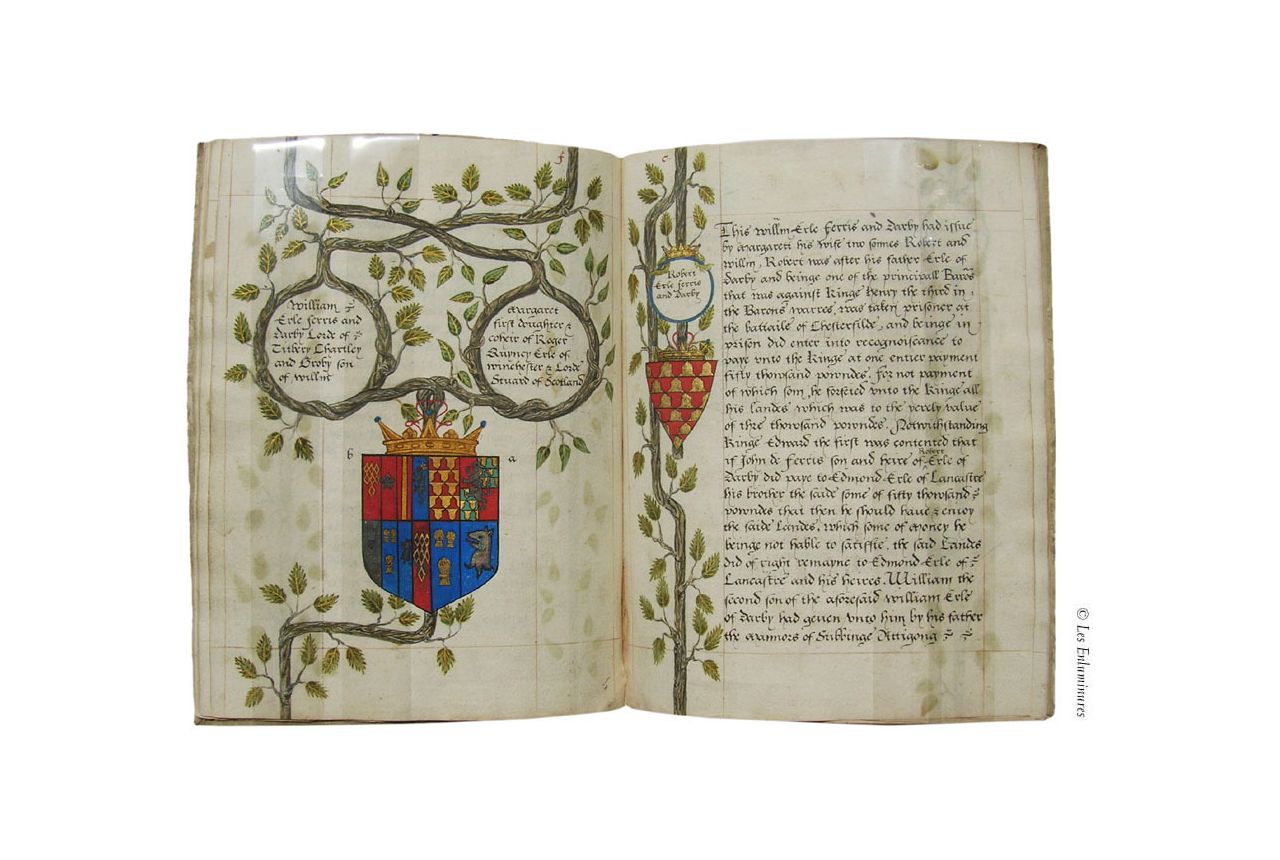 William
Erle ferris and
Darby Lorde of
Titbery Chartley
and Groby son
of willm
Margaret
first doughter &
coheir of Roger
Quyncy Erle of
winchester & Lorde
Stuard of Scotland
b
a
Robert
Erle ferris
and Darby
This willm Erle ferris and Darby had issue
by Margarett his wife two sonnes Robert and
willm, Robert was after his father Erle of
Darby and beinge one of the principall Barōs
that was against Kinge henry the third in
the Barons warres, was taken prisoner at
the battaile of Chesterfilde, and beinge in
prison did enter into recognoiscance to
paye vnto the Kinge at one entier payment
fifty thousand powndes. for not payment
of which som, he forfeted vnto the Kinge all
his landes which was to the yerely value
of thre thowsand powndes. Notwithstanding
Kinge Edward the first was contented that
Robert
if John de ferris son and heire of Erle of
Darby did paye to Edmond Erle of Lancastre
his brother the saide some of fifty thowsand
powndes that then he should have & enioy
the saide Landes, which some of money he
beinge not hable to satisfie, the said Landes
did of right remayne to Edmond Erle of
Lancastre and his heires. William the
second son of the aforesaid william Erle
of Darby had geven vnto him by his father
the mannors of
© Les Enluminures